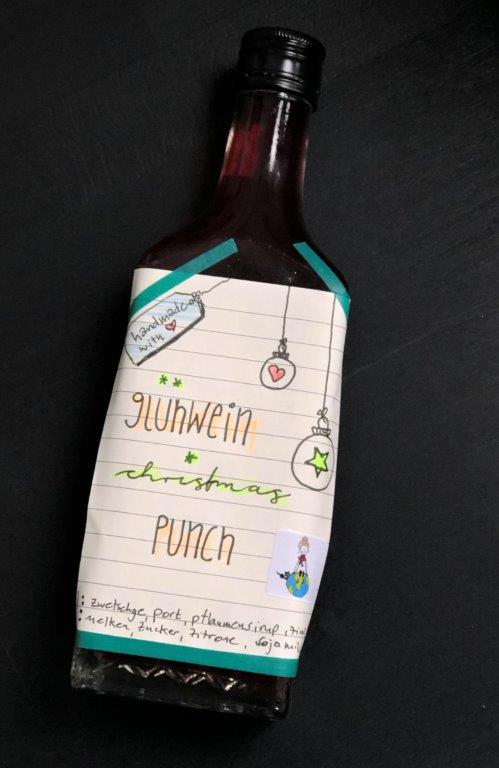 handmade
with
glühwein
christmas
punch
: zwetschge, port, pflaumensirup,
: nelken, zucker, zitrone,